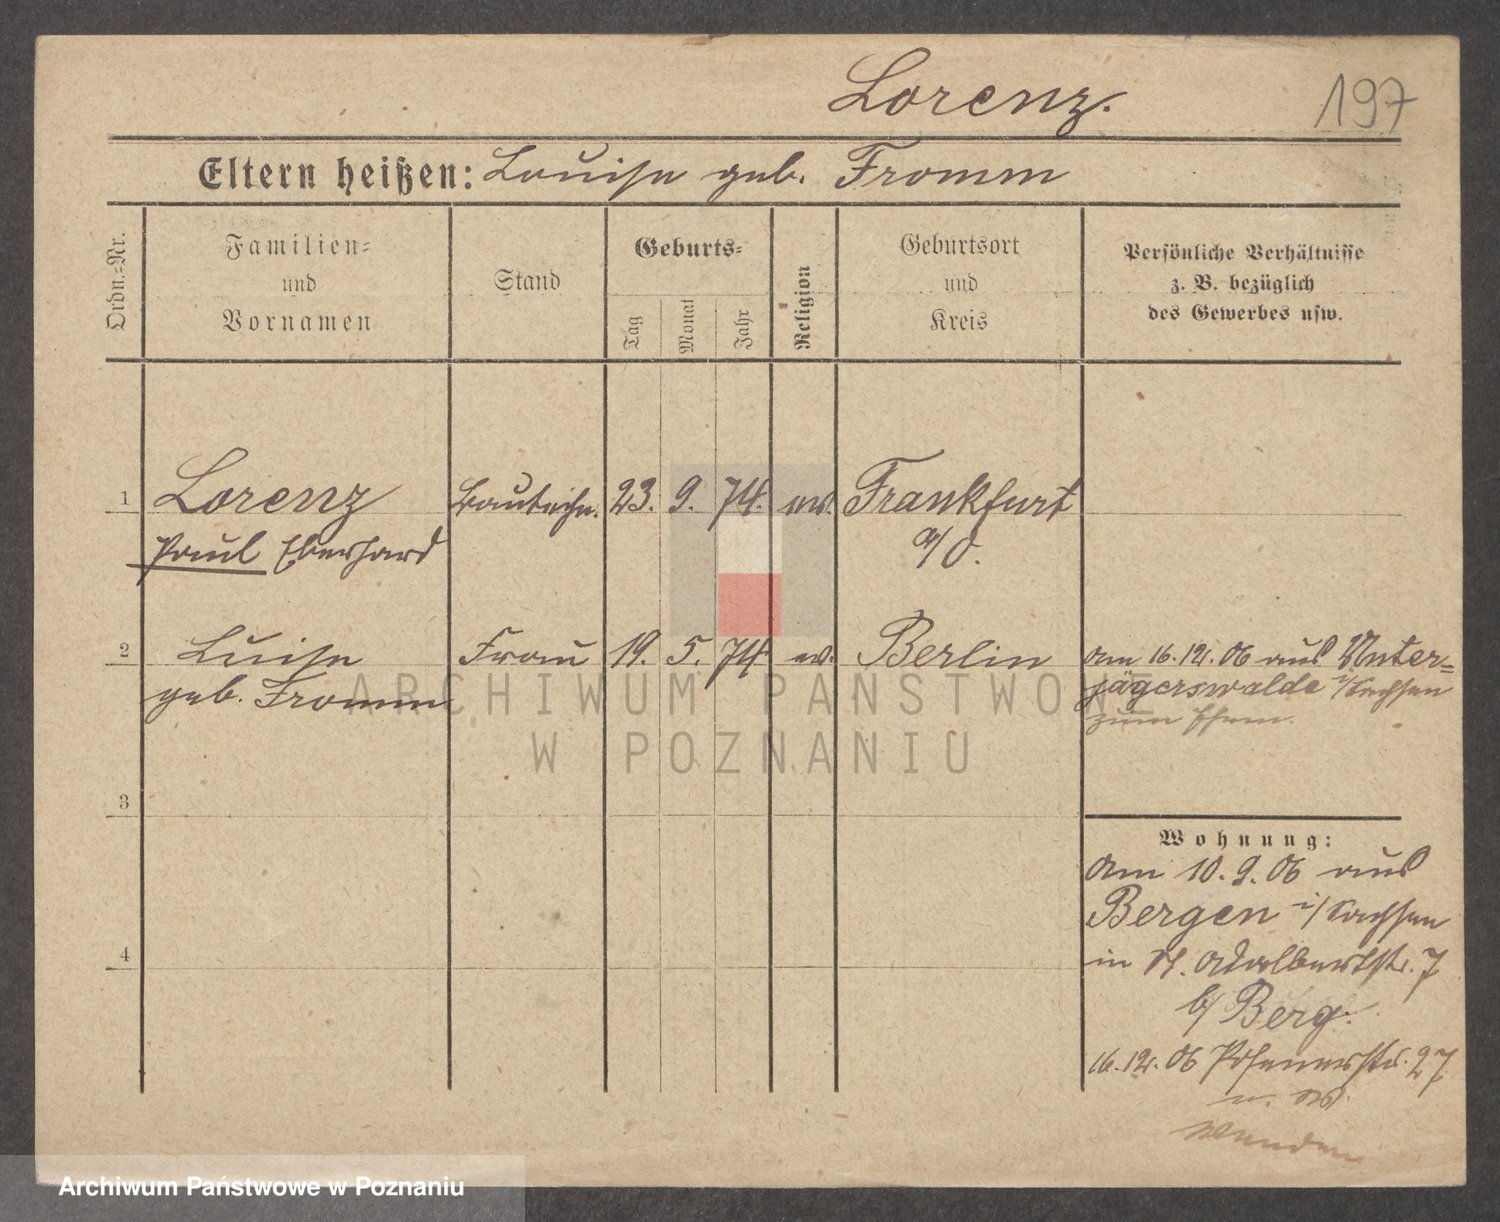 Lorenz.
197
Eltern heißen: Louise geb. Fromm
Ordn.-Nr.
Familien-
und
Vornamen
Stand
Geburts-
Tag
Monat
Jahr
Religion
Geburtsort
und
Kreis
Persönliche Verhältnisse
z. B. bezüglich
des Gewerbes usw.
1 Lorenz Bautechn. 23. 9. 74. ev. Frankfurt
Paul Eberhard a/O.
2 Luise Frau 19. 5. 74 ev. Berlin am 16.12.06 aus Unter-
geb. Fromm jägerswalde i/Sachsen
zum Ehem.
3
4
Wohnung:
Am 10.9.06 aus
Bergen i/Sachsen
in St. Adalbertstr. 7
b/ Berg.
16.12.06 Posenerstr. 27
wenden
ARCHIWUM PAŃSTWOWE
W POZNANIU
Archiwum Państwowe w Poznaniu